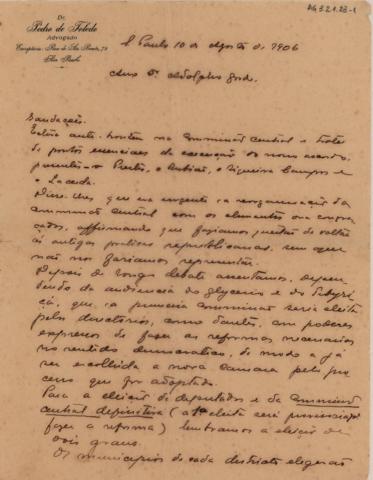 AG 3.2.1.28-1
Dr.
Pedro de Toledo
Advogado
Escriptorio - Rua de São Bento, 79
São Paulo
S. Paulo 10 de Agosto de 1906
Amo Dr. Adolpho Gordo
Saudação.
Estive ante-hontem na Commissão Central e tratei
de pontos essenciaes da execução do nosso accordo,
presentes o Prestes, o Rubião, o Siqueira Campos e
o Lacerda.
Disse-lhes que era urgente a reorganisação da
Commissão Central com os elementos ora congra-
çados, affirmando que faziamos questão da volta
ás antigas praticas republicanas, sem o que
não nos fariamos representar.
Depois de longo debate assentamos, depen-
dendo da audiencia do Glycerio e do Tibyri-
çá, que a primeira Commissão seria eleita
pelos directorios, como d'antes, com poderes
expressos de fazer as reformas necessarias
no sentido democratico, de modo a já
ser escolhida a nova Camara pelo pro-
cesso que for adoptado.
Para a eleição de deputados e da Commissão
Central definitiva (a 1ª eleita será provisoria p.
fazer a reforma) lembramos a eleição de
dois graus.
Os municipios de cada districto elegerão